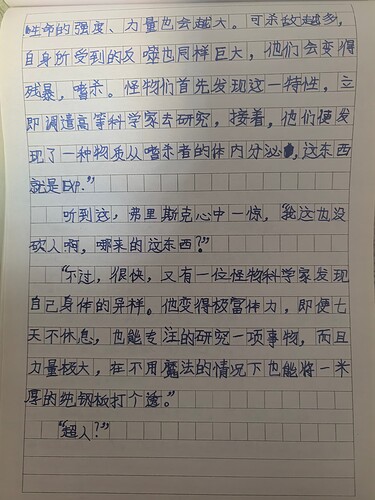 性命的强度、力量也会越大。可杀敌越多，
自身所受到的反噬也同样巨大，他们会变得
残暴，嗜杀。怪物们首先发现这一特性，立
即调遣高等科学家去研究，接着，他们便发
现了一种物质从嗜杀者的体内分泌，这东西
就是EXP。”
听到这，弗里斯克心中一惊，“我这也没
砍人啊，哪来的这东西？”
“不过，很快，又有一位怪物科学家发现
自己身体的异样。他变得极富体力，即便七
天不休息，也能专注的研究一项事物，而且
力量极大，在不用魔法的情况下也能将一米
厚的纯钢板打个透。”
“超人？”